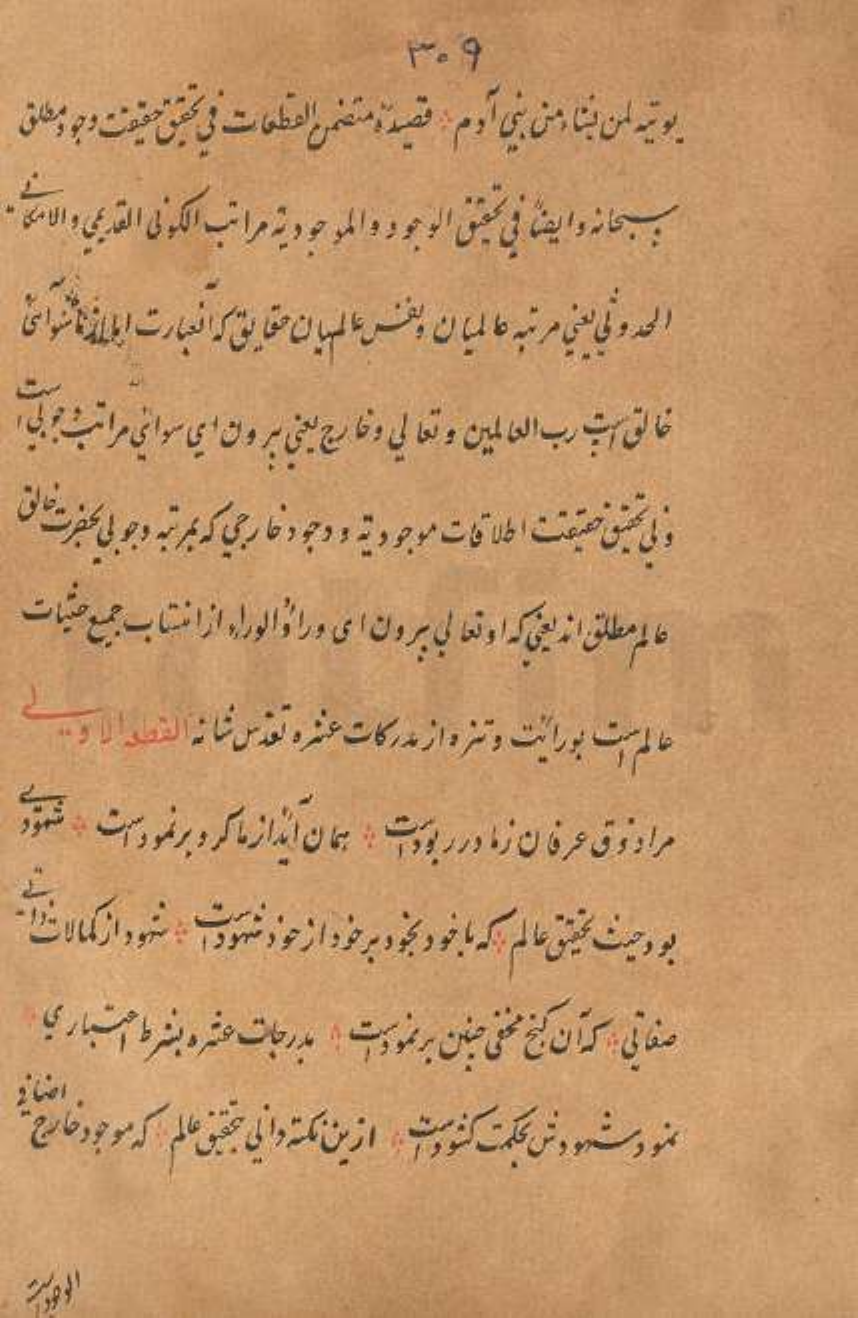 ۳۰۹
یوتیه لمن یشاء من بنی آدم قصیدة متضمن القطعات فی تحقیق حقیقت وجود مطلق
سبحانه و ایضاً فی تحقق الوجود و الموجودیة مراتب الکونی القدیمی و الامکانی
الحدوثی یعنی مرتبه عالمیان و نفس عالم بیان حقایق که آنعبارت
خالق است رب العالمین و تعالی و خارج یعنی برون ای سوائی مراتب وجوبی است
و فی تحقیق حقیقت اطلاقات موجودیة و وجود خارجی که بمرتبه وجوبی بحضرت خالق
عالم مطلق اند یعنی که او تعالی برون ای وراءُ الوراء از انتساب جمیع حثیات
عالم است بورائیت و تنزه از مدرکات عشره تقدس شانه القطعه الاولی
مراد ذوق عرفان زما در ربوداست همان آید از ما کر و برنموداست شهودی
بود حیث تحقیق عالم که با خود بخود بر خود از خود شهوداست شهود از کمالات ذاتی
صفاتی که آن کنج مخفی چنین برنموداست بدرجات عشره بشرط اعتباری
نمود شهودش بحکمت کشوداست ازین نکته دانی بتحقیق عالم که موجود خارج اضافی
الوجوداست